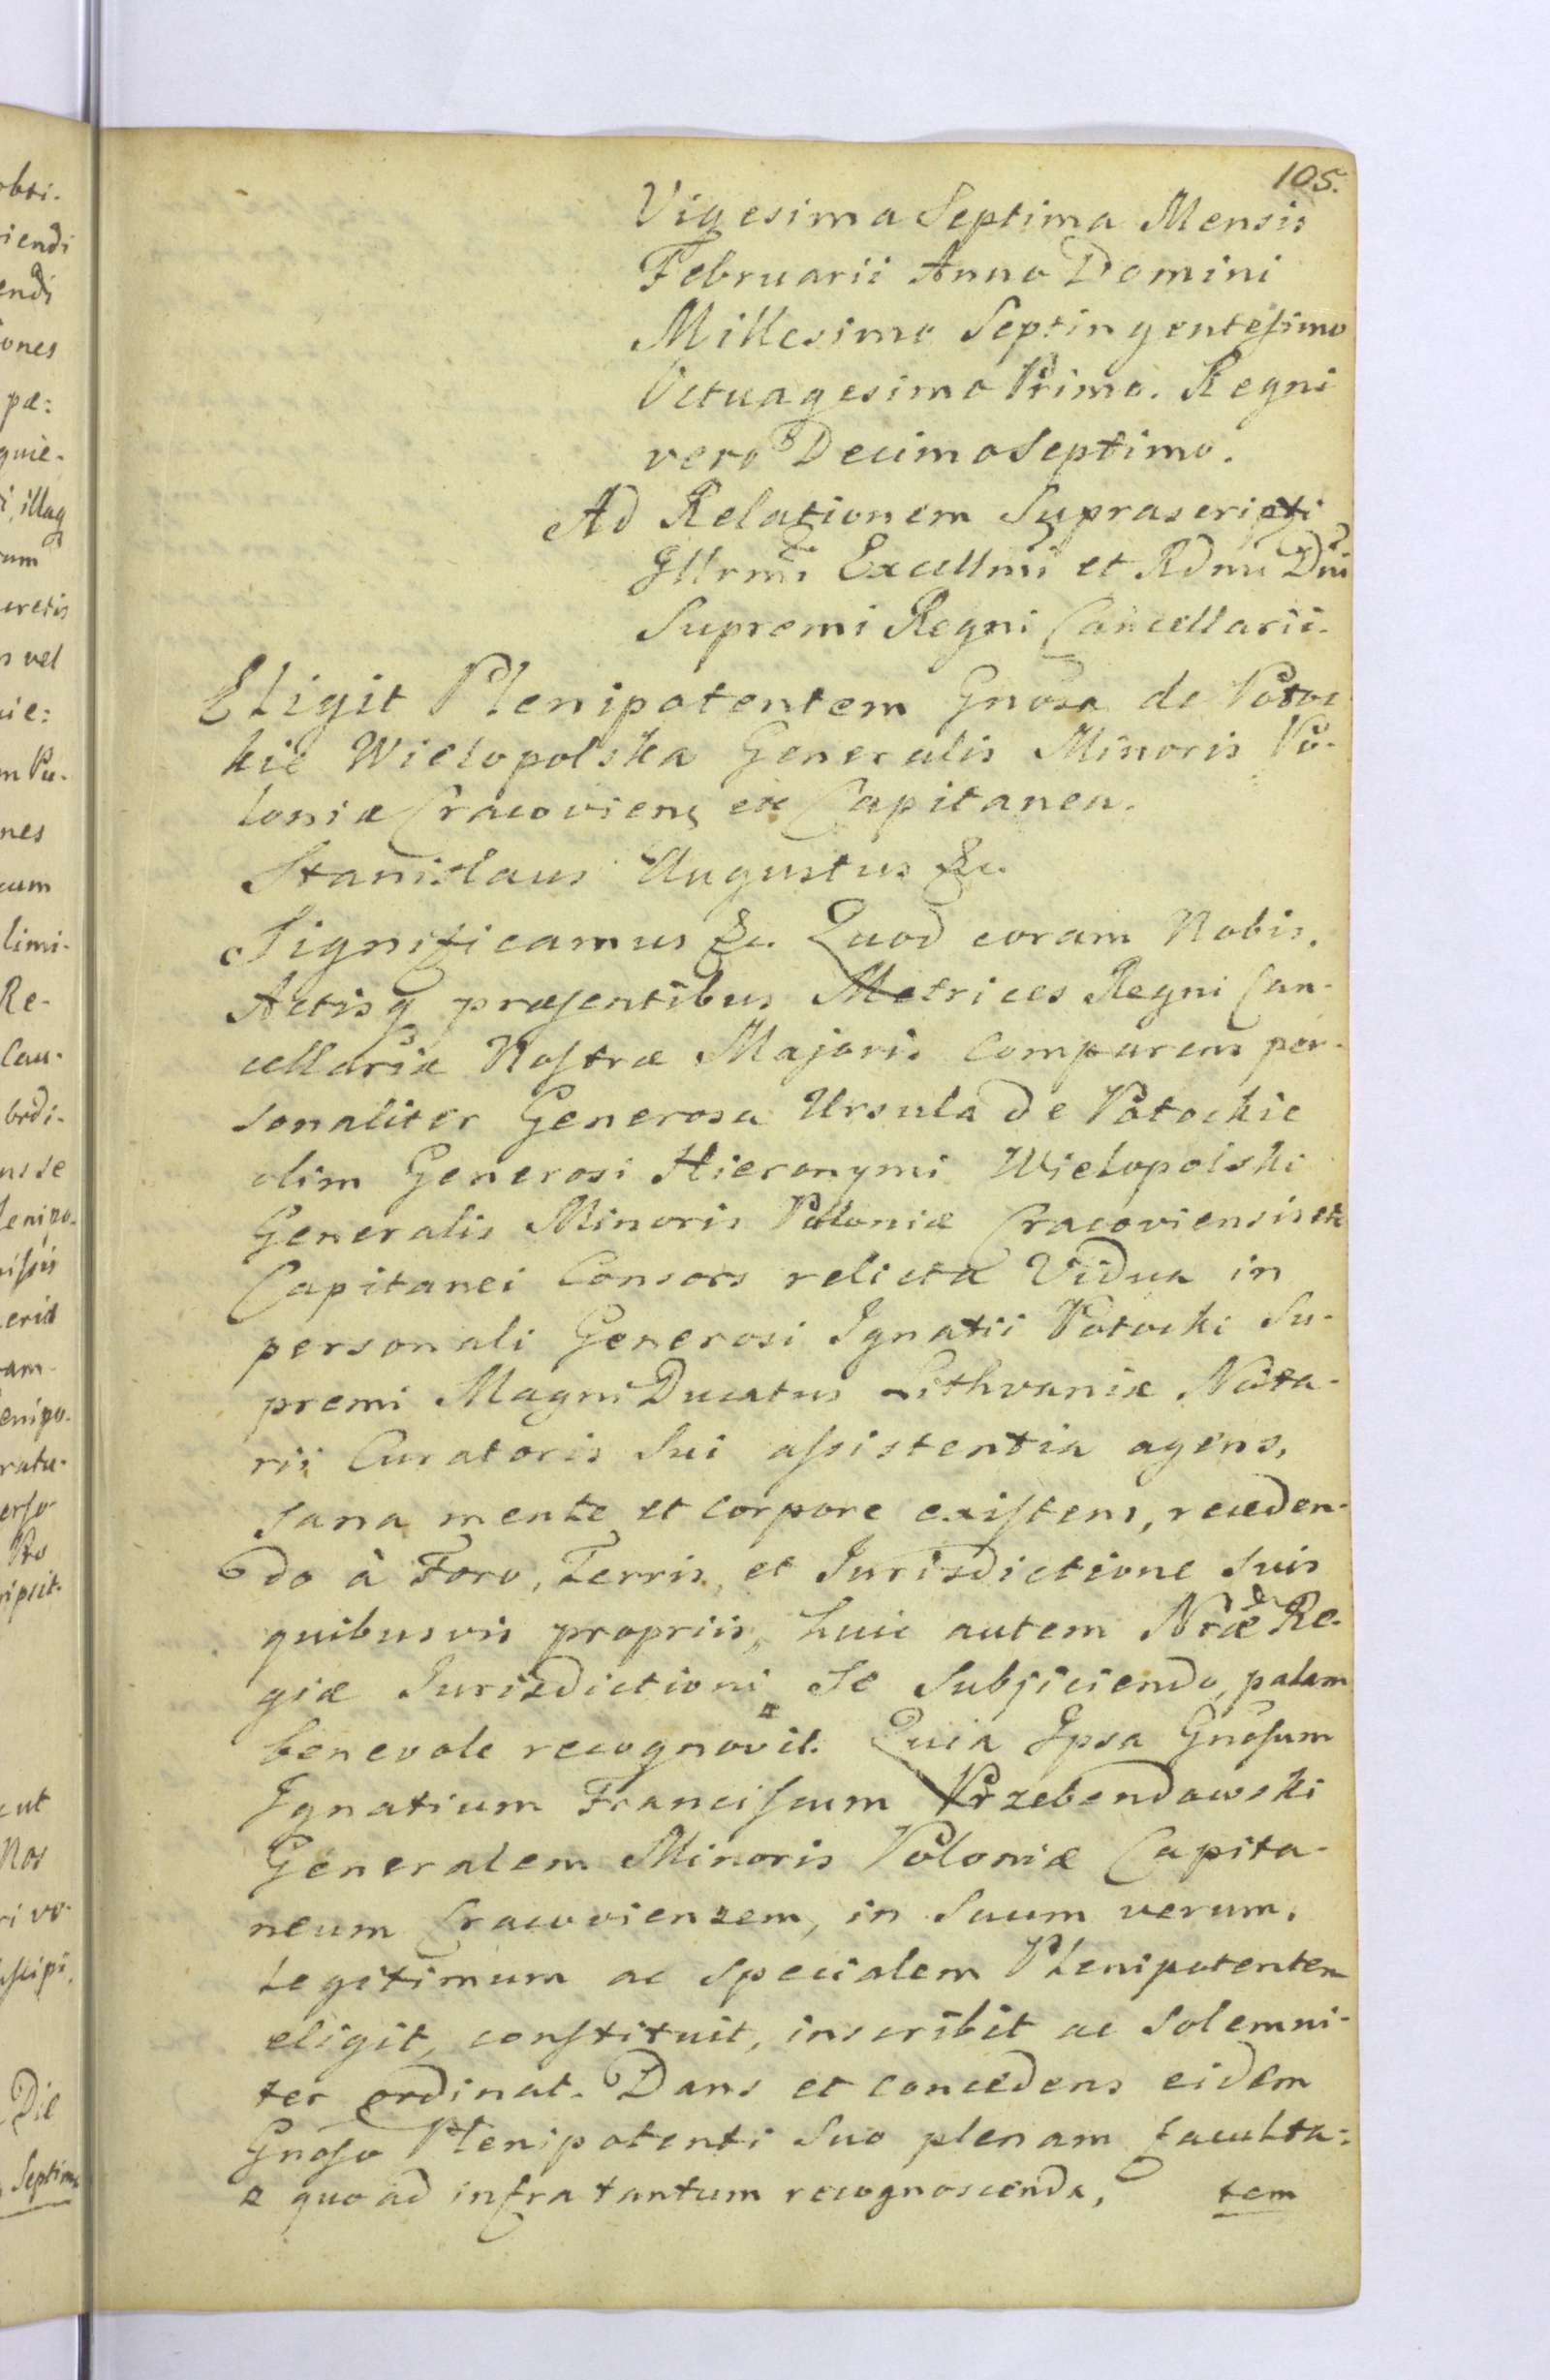 105.
Vigesima Septima Mensis
Februarii Anno Domini
Millesimo Septingentesimo
Octuagesimo Primo. Regni
vero Decimo Septimo.
Ad Relationem Suprascripti
Illrmi Excellmi et Rdmi Dni
Supremi Regni Cancellarii.
Eligit Plenipotentem Gnosa de Potoc
kie Wielopolska Generalis Minoris Po-
loniæ Cracovien etc Capitanea.
Stanislaus Augustus &c.
Significamus &c. Quod coram Nobis,
Actisq præsentibus Metrices Regni Can-
cellariæ Nostræ Majoris Comparens per-
sonaliter Generosa Ursula de Potockie
olim Generosi Hieronymi Wielopolski
Generalis Minoris Poloniæ Cracoviensis etc
Capitanei Consors relicta Vidua in
personali Generosi Ignatii Potocki Su-
premi Magni Ducatus Lithvaniæ Nota-
rii Curatoris Sui assistentia agens,
sana mente et corpore existens, receden-
do à Foro, Terris, et Jurisdictione Suis
quibusvis propriis, huic autem Nræ Re-
giæ Jurisdictioni Se Subjiciendo, palam
benevole recognovit. Quia Ipsa Gnosum
Ignatium Franciscum Przebendowski
Generalem Minoris Poloniæ Capita-
neum Cracoviensem, in Suum verum,
legitimum ac specialem Plenipotentem
eligit, constituit, inscribit ac Solemni-
ter ordinat. Dans et concedens eidem
Gnoso Plenipotenti Suo plenam faculta-
quo ad infra tantum recognoscenda, tem